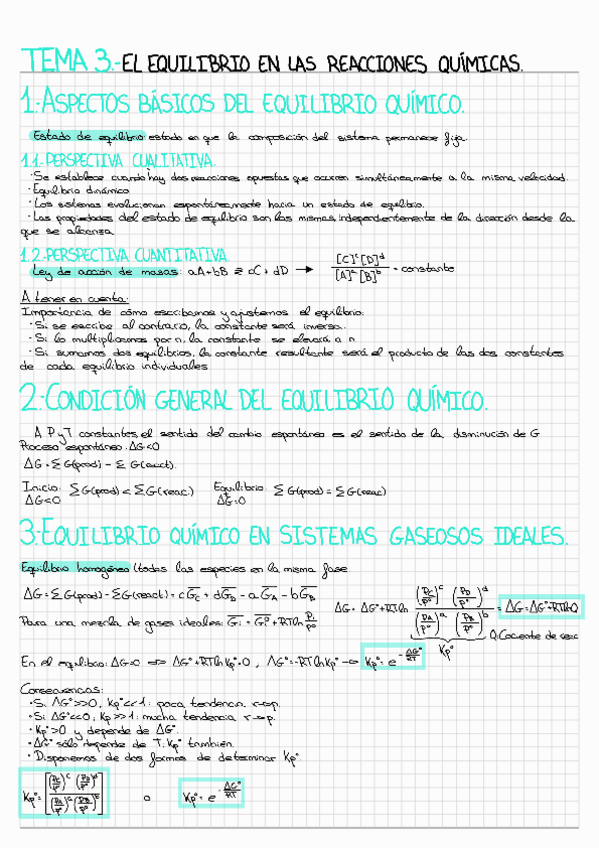 TEMA 3.-EL EQUILIBRIO EN LAS REACCIONES QUÍMICAS.
1.-ASPECTOS BÁSICOS DEL EQUILIBRIO QUÍMICO.
Estado de equilibrio: estado en que la composición del sistema permanece fija.
1.1.-PERSPECTIVA CUALITATIVA.
·Se establece cuando hay dos reacciones opuestas que ocurren simultáneamente a la misma velocidad.
·Equilibrio dinámico
·Los sistemas evolucionan espontáneamente hacia un estado de equilibrio.
·Las propiedades del estado de equilibrio son las mismas, independientemente de la dirección desde la
que se alcanza.
1.2.-PERSPECTIVA CUANTITATIVA.
Ley de acción de masas: aA+bB ⇌ cC+dD → [C]^c [D]^d / [A]^a [B]^b = constante
A tener en cuenta:
Importancia de cómo escribamos y ajustemos el equilibrio:
·Si se escribe al contrario, la constante será inversa.
·Si lo multiplicamos por n, la constante se elevará a n.
·Si sumamos dos equilibrios, la constante resultante será el producto de las dos constantes
de cada equilibrio individuales.
2.-CONDICIÓN GENERAL DEL EQUILIBRIO QUÍMICO.
A P y T constantes, el sentido del cambio espontáneo es el sentido de la disminución de G
Proceso espontáneo: ΔG<0
ΔG = Σ G(prod) - Σ G(react).
Inicio: ΣG(prod) < ΣG(reac.) Equilibrio: ΣG(prod) = ΣG(reac)
ΔG<0 ΔG=0
3.-EQUILIBRIO QUÍMICO EN SISTEMAS GASEOSOS IDEALES.
Equilibrio homogéneo (todas las especies en la misma fase
ΔG = ΣG(prod) - ΣG(react) = cG̅C + dG̅D - aG̅A - bG̅B ΔG = ΔG°+RTln (PC/P°)^c (PD/P°)^d / (PA/P°)^a (PB/P°)^b = ΔG=ΔG°+RTlnQ
Para una mezcla de gases ideales: G̅i = G̅i°+RTln Pi/P° Q:Cociente de reac
Kp°
En el equilibrio: ΔG=0 ⟹ ΔG°+RTlnKp°=0, ΔG°=-RTlnKp° → Kp°= e^(-ΔG°/RT)
Consecuencias:
·Si ΔG°>>0, Kp°<<1: poca tendencia r→p.
·Si ΔG°<<0, Kp>>1: mucha tendencia r→p.
·Kp°>0 y depende de ΔG°.
·ΔG° sólo depende de T: Kp° también.
·Disponemos de dos formas de determinar Kp°.
Kp°= [(PC/P°)^c (PD/P°)^d / (PA/P°)^a (PB/P°)^b] o Kp°= e^(-ΔG°/RT)